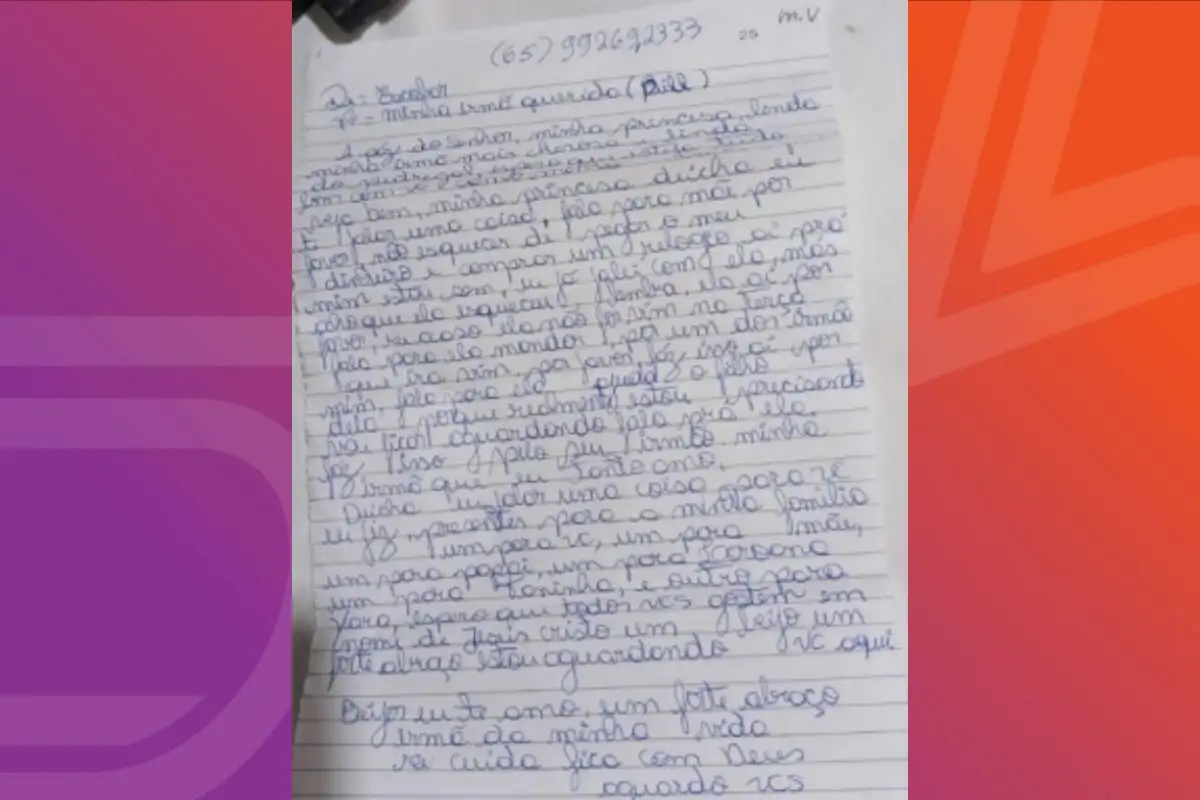 m.V
(65) 992692333 25
De = Escobar
P = minha irmã querida (Pill)
A paz do senhor, minha princesa, linda
minha irmã mais cherosa e linda
do
seja bem, minha princesa ducha eu
falar uma coisa, fala para mãe por
favor não esquecer de pegar o meu
dinheiro e comprar um relogio ai pra
mim estou sem, eu já falei com ela, mas
caso que ela esqueceu, lembra ela ai por
favor, se caso ela não for vim na terça
fala para ela mandar, por um dos irmão
que ira vim, por favor, faz isso ai por
mim, fala para ela ajuda o filho
dela, porque realmente estou precisando
vai ficar aguardando fala pra ela.
faz isso pelo seu irmão minha
irmã que eu tanto amo.
Ducha eu falar uma coisa para vc
eu fiz, presentes para a minha familia
um para vc, um para mãe,
um para papai, um para
um para Toninha, e outro para
Yara, espero que todos vcs gostem em
nome de Jesus cristo um beijo um
forte abraço estou aguardando vc aqui
Beijos eu te amo, um forte abraço
irmã da minha vida
se cuida fica com Deus
aguardo vcs